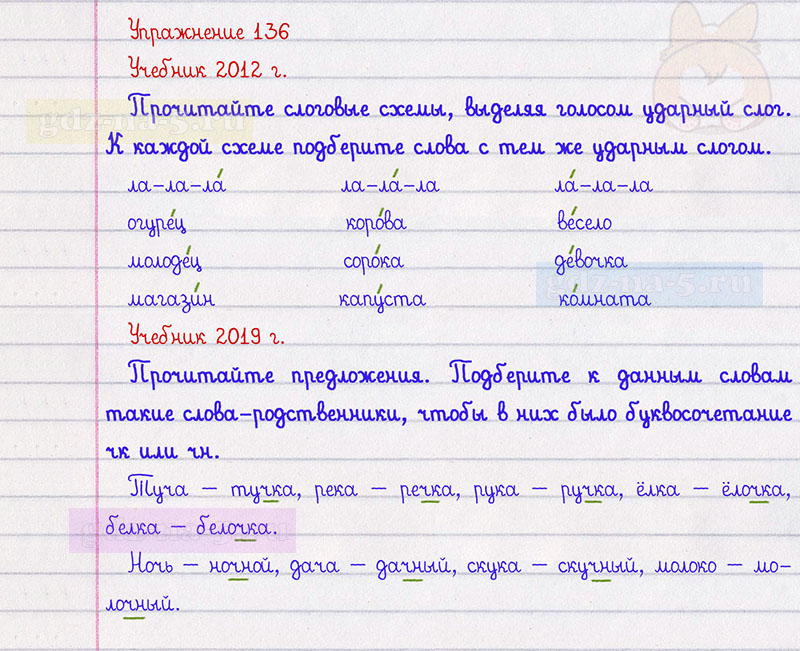 Упражнение 136
Учебник 2012 г.
Прочитайте слоговые схемы, выделяя голосом ударный слог.
gdz-na-5.ru
К каждой схеме подберите слова с тем же ударным слогом.
ла-ла-ла́ ла-ла́-ла ла́-ла-ла
огуре́ц коро́ва ве́село
молоде́ц соро́ка де́вочка
gdz-na-5.ru
магази́н капу́ста ко́мната
Учебник 2019 г.
Прочитайте предложения. Подберите к данным словам
такие слова-родственники, чтобы в них было буквосочетание
чк или чн.
Туча – тучка, река – речка, рука – ручка, ёлка – ёлочка,
белка – белочка.
gdz-na-5.ru
Ночь – ночной, дача – дачный, скука – скучный, молоко – мо-
лочный.